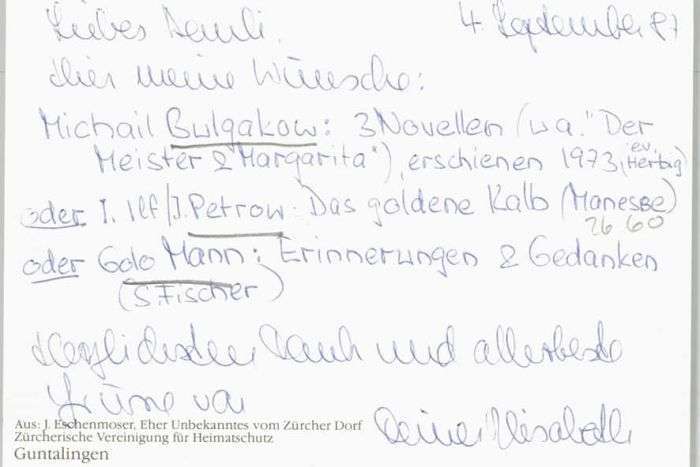 Liebes Pauli. 4. September 87
Hier meine Wünsche:
Michail Bulgakow: 3 Novellen (u a. "Der
Meister & Margarita"), erschienen 1973 (ev. Herbig)
oder I. Ilf / J. Petrow: Das goldene Kalb (Manesse)
26 60
oder Golo Mann: Erinnerungen & Gedanken
(S Fischer)
Herzlichsten Dank und allerbeste
Grüsse von
Deiner Elisabeth
Aus: J. Eschenmoser, Eher Unbekanntes vom Zürcher Dorf
Zürcherische Vereinigung für Heimatschutz
Guntalingen